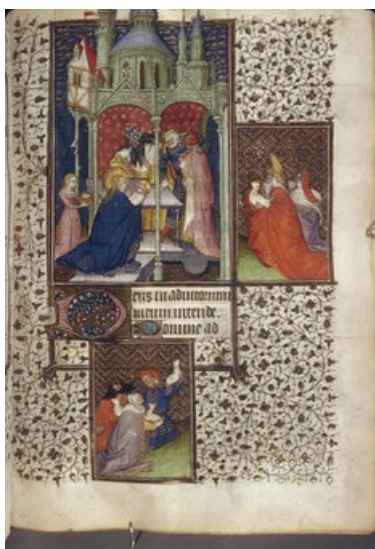 Deus in adiutorium
meum intende.
Domine ad